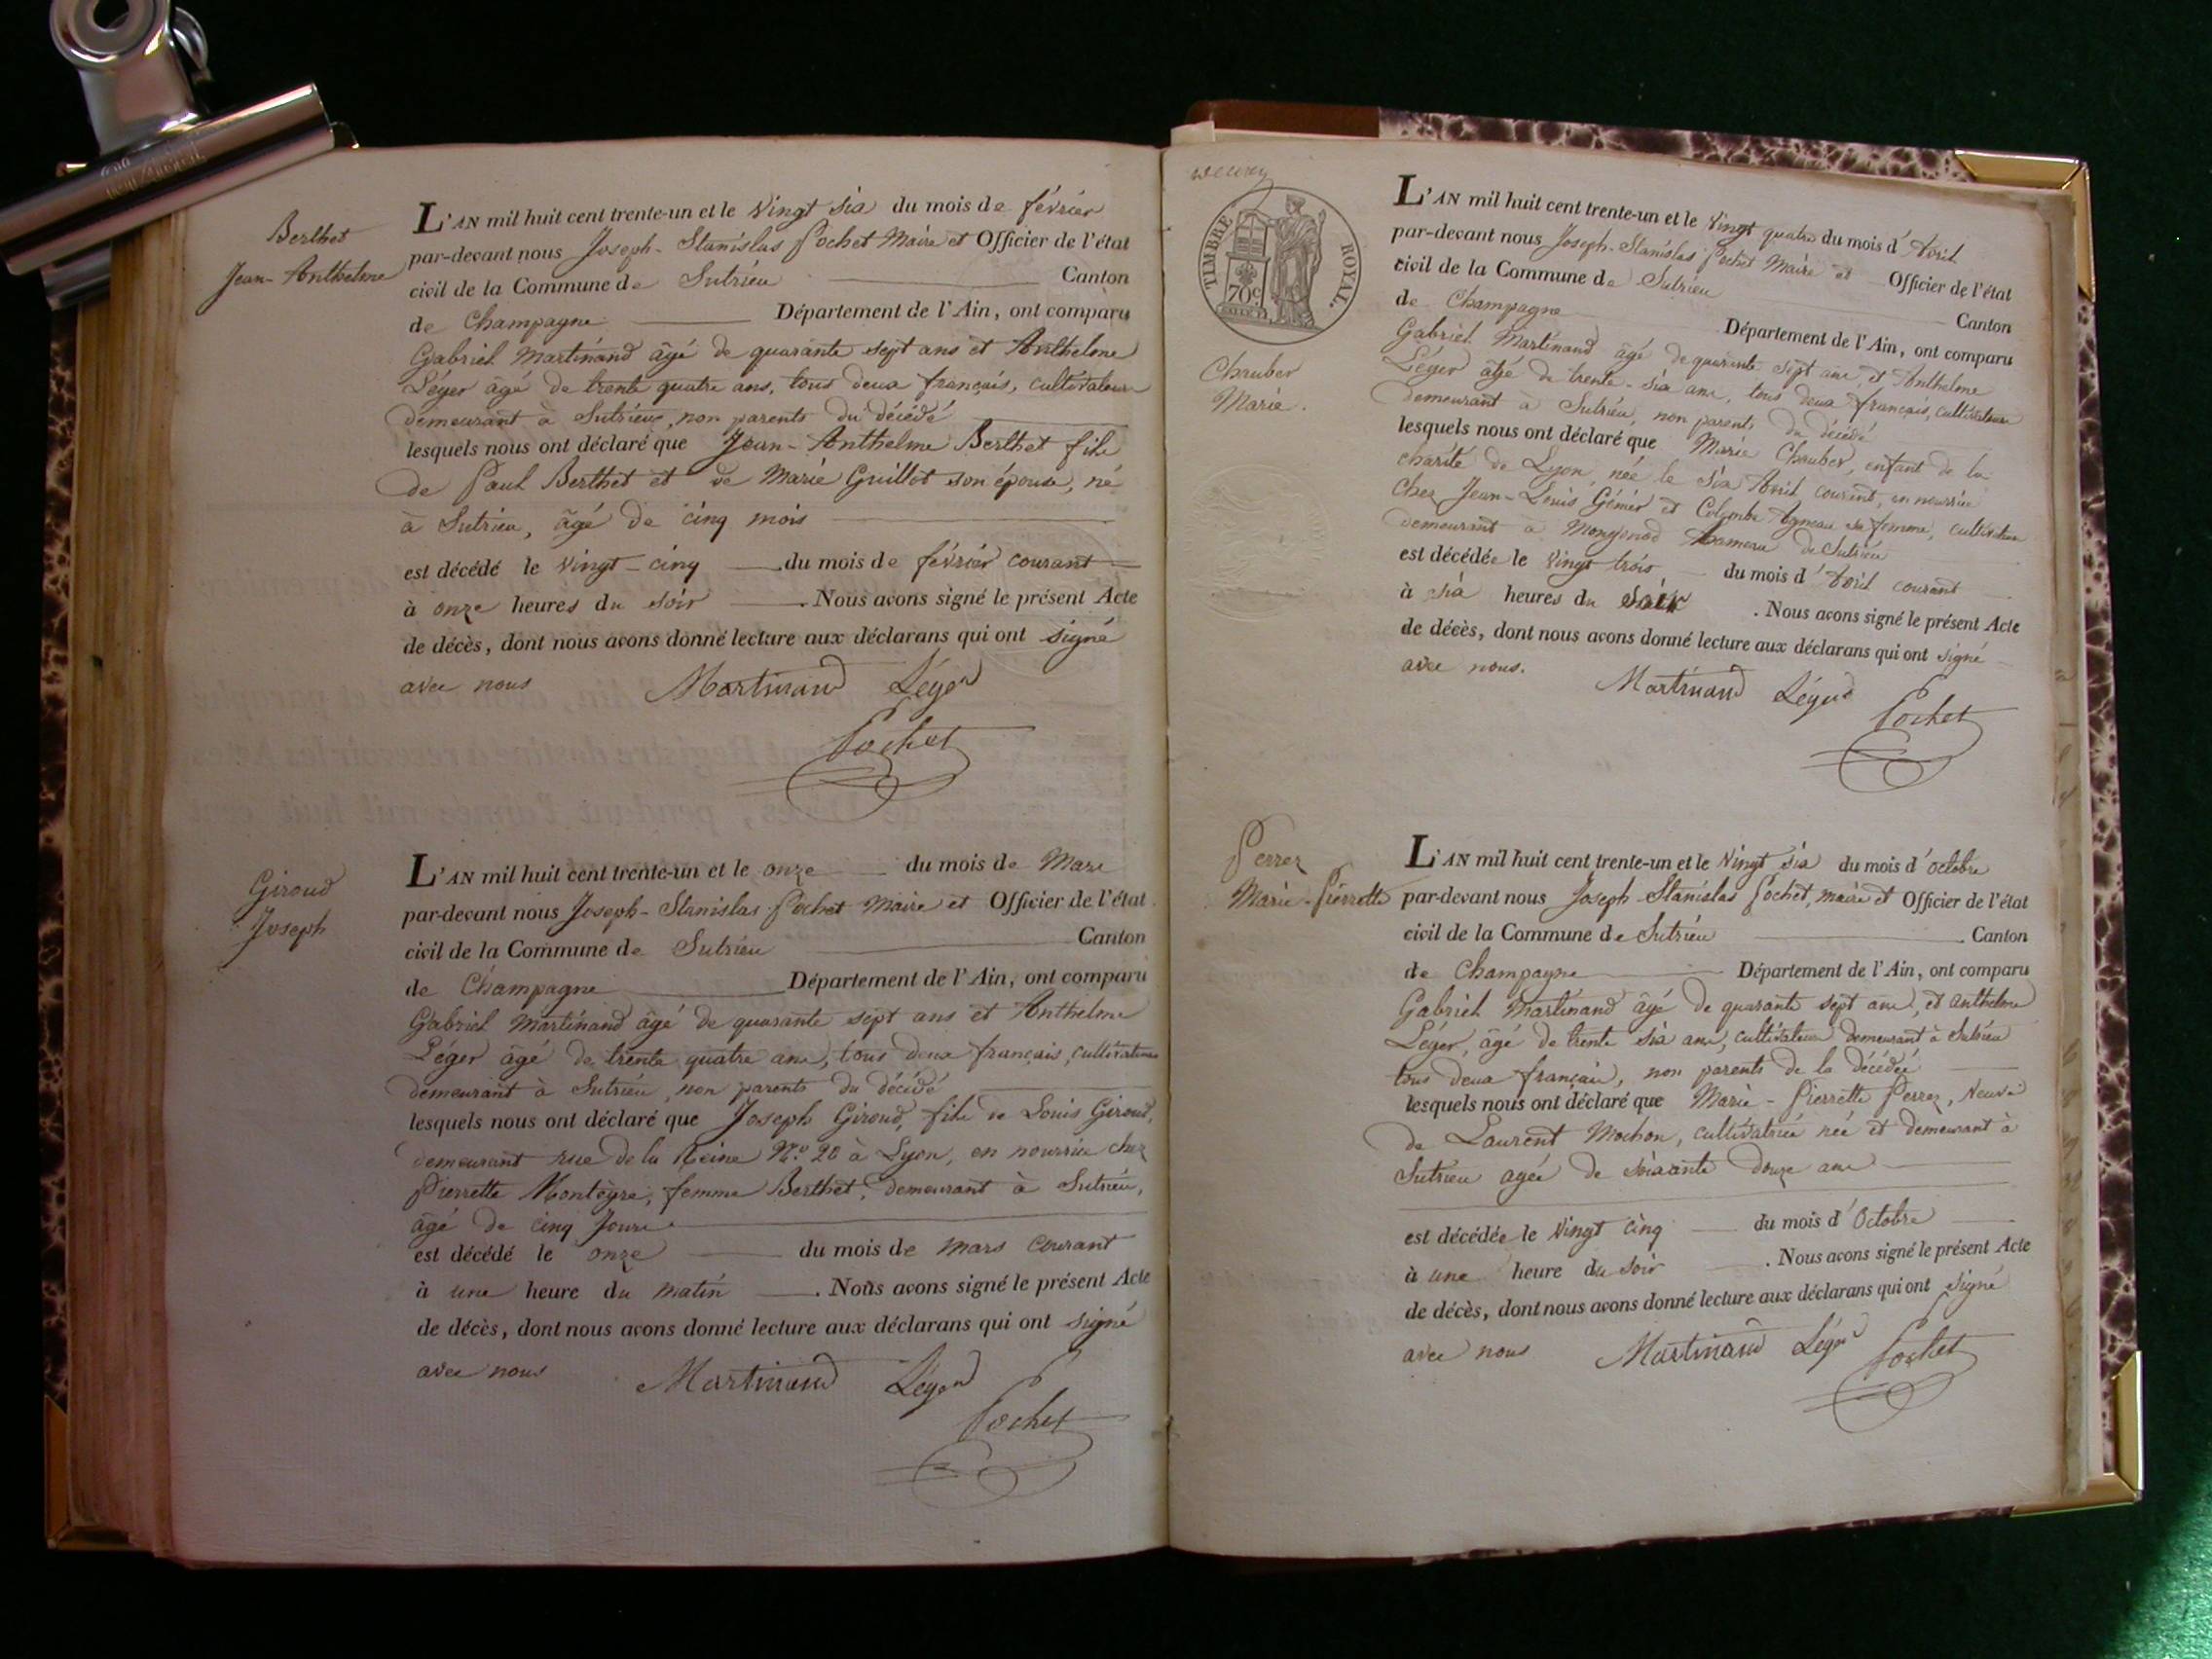 Berthet
Jean-Anthelme
L'AN mil huit cent trente-un et le vingt six du mois de février
par-devant nous Joseph-Stanislas Pochet Maire et Officier de l'état
civil de la Commune de Sutrieu Canton
de Champagne Département de l'Ain, ont comparu
Gabriel Martinand âgé de quarante sept ans et Anthelme
Léger âgé de trente quatre ans, tous deux français, cultivateurs
demeurant à Sutrieu, non parents du décédé
lesquels nous ont déclaré que Jean-Anthelme Berthet fils
de Paul Berthet et de Marie Guillot son épouse, né
à Sutrieu, âgé de cinq mois
est décédé le vingt-cinq du mois de février courant
à onze heures du soir. Nous avons signé le présent Acte
de décès, dont nous avons donné lecture aux déclarans qui ont signé
avec nous Martinand Léger
Pochet
Giroud
Joseph
L'AN mil huit cent trente-un et le onze du mois de Mars
par-devant nous Joseph-Stanislas Pochet Maire et Officier de l'état
civil de la Commune de Sutrieu Canton
de Champagne Département de l'Ain, ont comparu
Gabriel Martinand âgé de quarante sept ans et Anthelme
Léger âgé de trente quatre ans, tous deux français, cultivateurs
demeurant à Sutrieu, non parents du décédé
lesquels nous ont déclaré que Joseph Giroud, fils de Louis Giroud,
demeurant rue de la Reine N.° 20 à Lyon, en nourrice chez
Pierrette Montègre, femme Berthet, demeurant à Sutrieu,
âgé de cinq jours
est décédé le onze du mois de mars courant
à une heure du matin. Nous avons signé le présent Acte
de décès, dont nous avons donné lecture aux déclarans qui ont signé
avec nous Martinand Léger
Pochet
TIMBRE ROYAL.
70c
Chruber
Marie.
L'AN mil huit cent trente-un et le vingt quatre du mois d'Avril
par-devant nous Joseph-Stanislas Pochet Maire et Officier de l'état
civil de la Commune de Sutrieu Canton
de Champagne Département de l'Ain, ont comparu
Gabriel Martinand âgé de quarante sept ans, et Anthelme
Léger âgé de trente-six ans, tous deux français, cultivateurs
demeurant à Sutrieu, non parents du décédé
lesquels nous ont déclaré que Marie Chruber, enfant de la
charité de Lyon, née le six Avril courant, en nourrice
chez Jean-Louis Génier et Colombe Agneau sa femme, cultivateurs
demeurant à Mongonod hameau de Sutrieu
est décédée le vingt trois du mois d'Avril courant
à six heures du soir. Nous avons signé le présent Acte
de décès, dont nous avons donné lecture aux déclarans qui ont signé
avec nous. Martinand Léger
Pochet
Perrez
Marie-Pierrette
L'AN mil huit cent trente-un et le vingt six du mois d'octobre
par-devant nous Joseph-Stanislas Pochet, maire et Officier de l'état
civil de la Commune de Sutrieu Canton
de Champagne Département de l'Ain, ont comparu
Gabriel Martinand âgé de quarante sept ans, et Anthelme
Léger, âgé de trente six ans, cultivateurs demeurant à Sutrieu
tous deux français, non parents de la décédée
lesquels nous ont déclaré que Marie-Pierrette Perrez, veuve
de Laurent Mochon, cultivatrice née et demeurant à
Sutrieu agée de soixante douze ans
est décédée le vingt cinq du mois d'Octobre
à une heure du soir. Nous avons signé le présent Acte
de décès, dont nous avons donné lecture aux déclarans qui ont signé
avec nous Martinand Léger Pochet